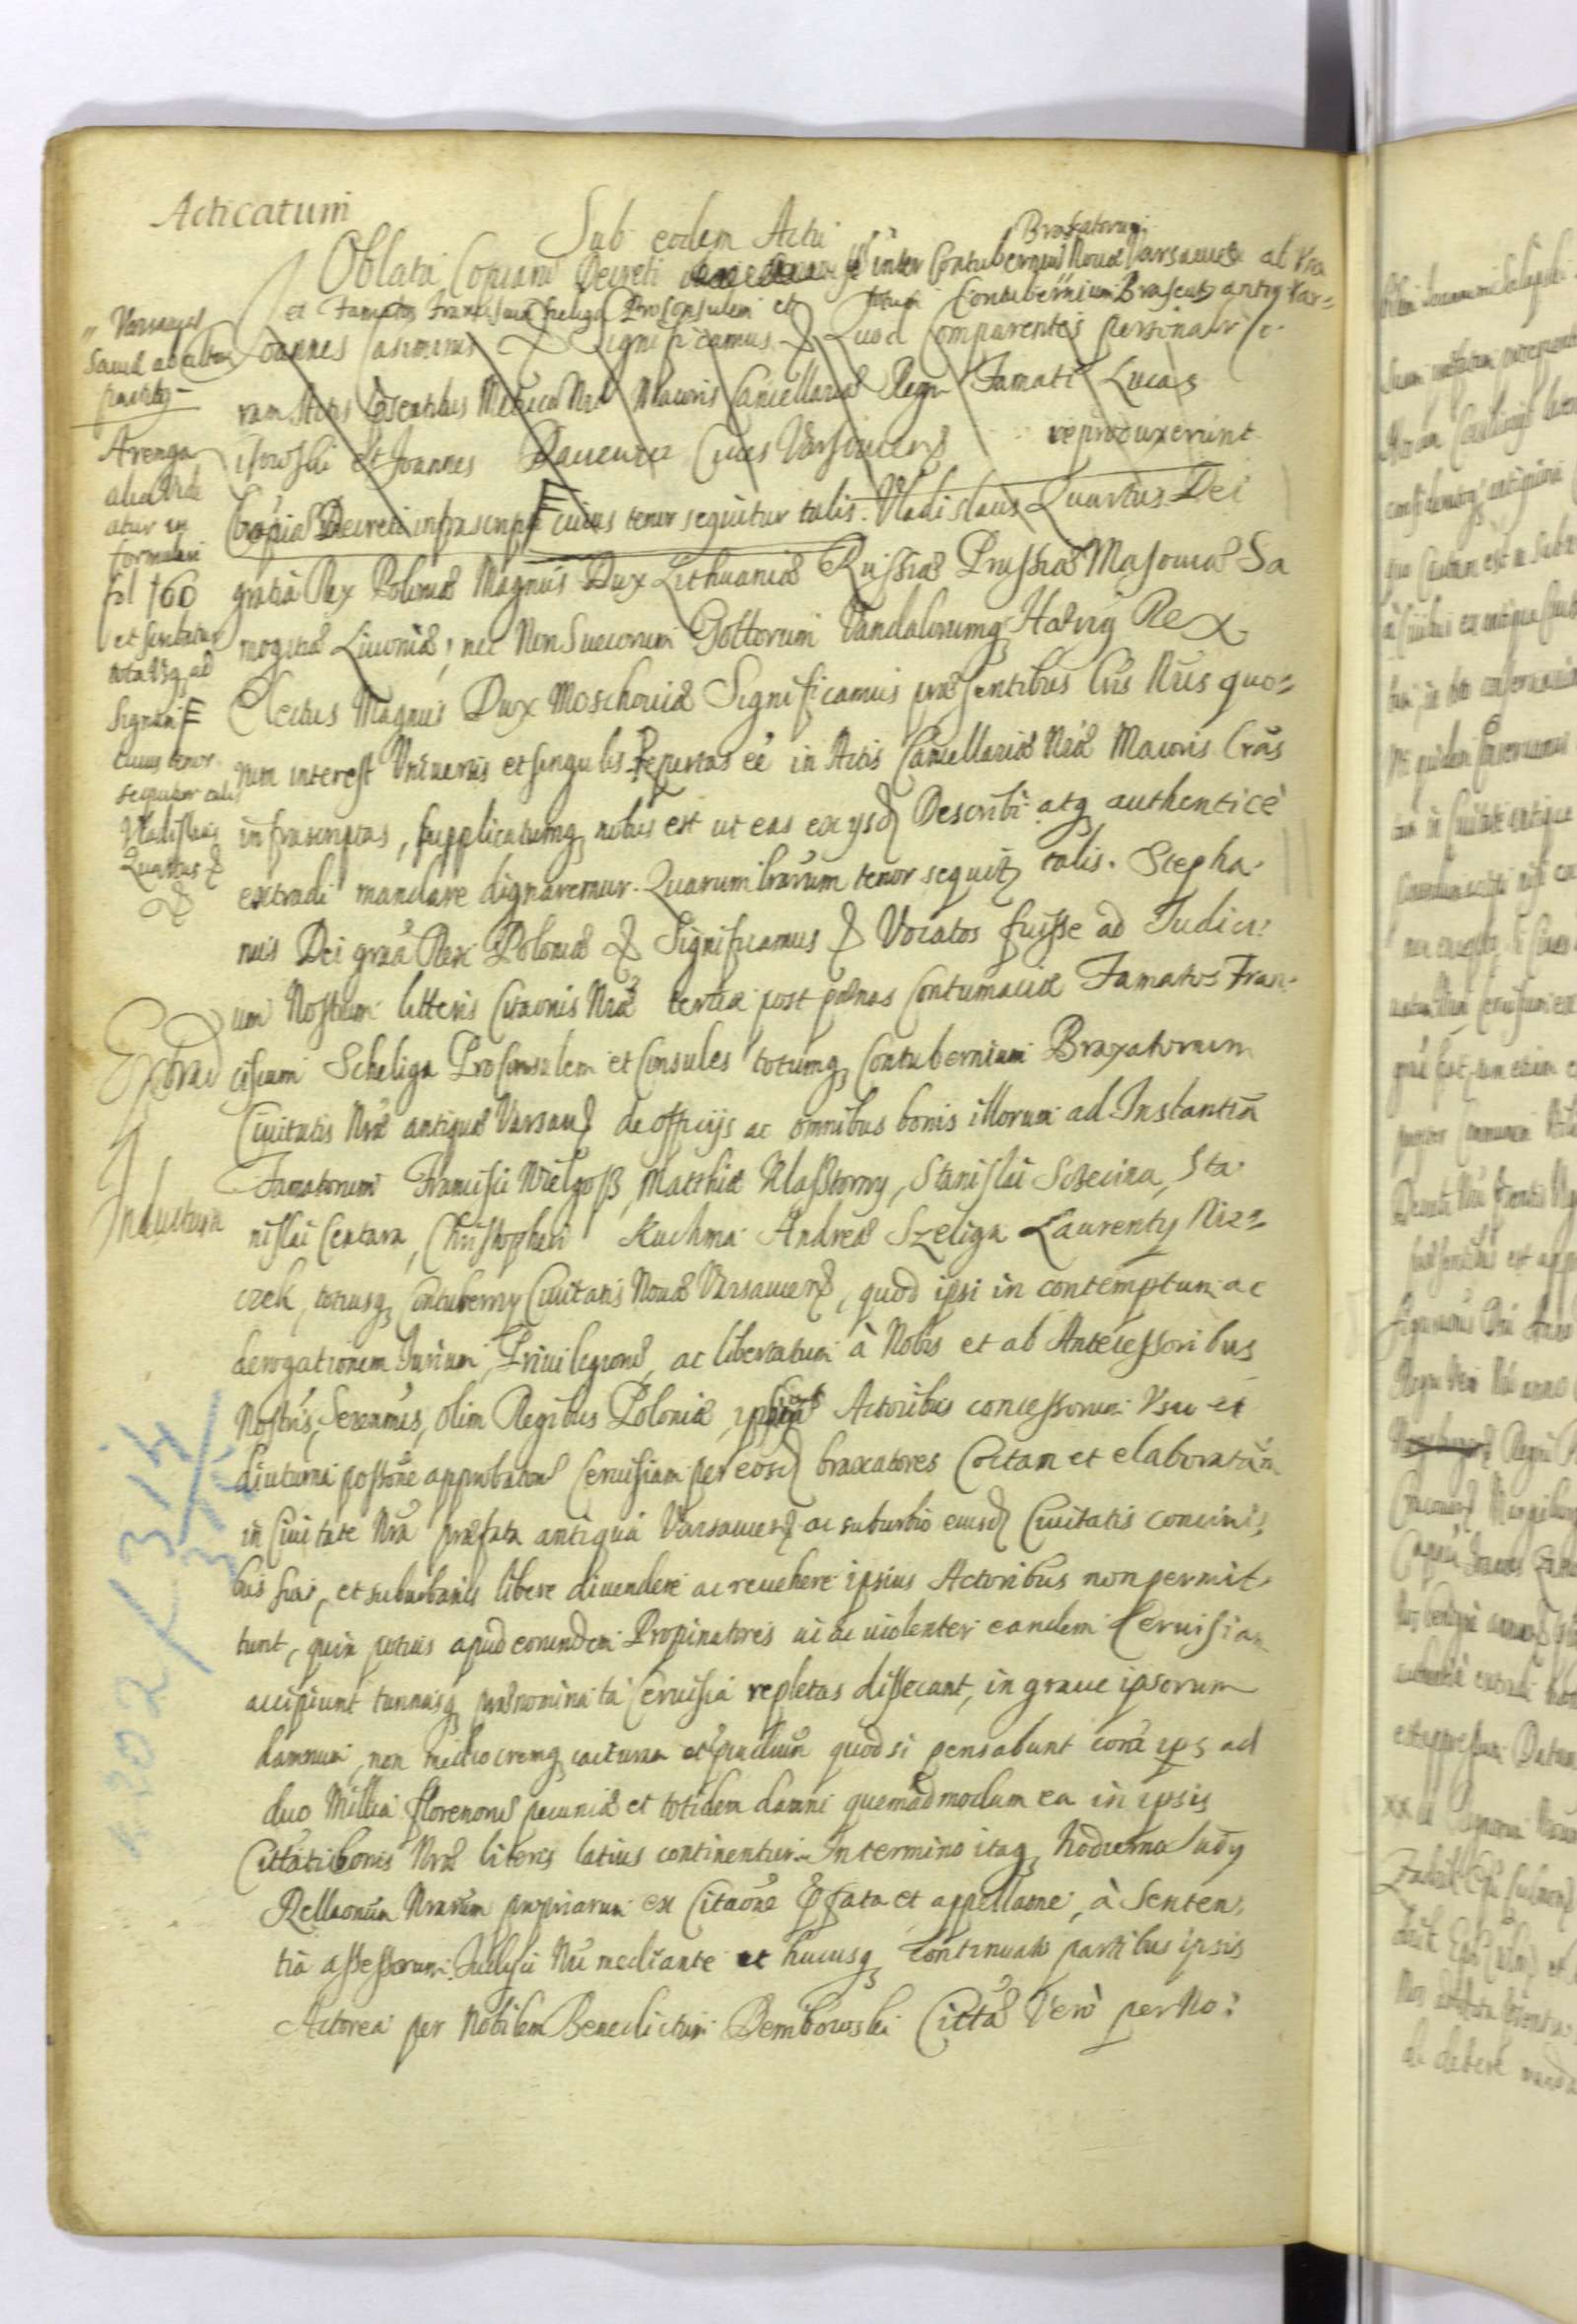 Acticatum
Sub eodem Actu
Braxatorum
Oblata Copiarum Decreti inter Contubernium Noua Varsauiæ ab vna
et Famatos Franciscum Szeliga Proconsulem et totum Contubernium Braseat antiq Var=
Joannes Casimirus & Significamus & Quod Comparentes personalr Co
ram Actis Metrices Nræ Maioris Cancellariæ Regn Famati Lucas
et Joannes Ciues Varsauien reproduxerunt
Copiã Decreti infrascripti F cuius tenor sequitur talis. Vladislaus Quartus Dei
gratia Rex Poloniæ Magnus Dux Lithuaniæ Russiæ Prussiæ Masouiæ Sa
mogitiæ Liuoniæ, nec Non Suecorum Gottorum Vandalorumq Hærẏ Rex
Electus Magnus Dux Moschouiæ Significamus præsentibus Lris Nris quo=
rum interest Vniuersis et singulis Repertas eẽ in Actis Cancellariæ Nræ Maioris Lrãs
infrascriptas, supplicatumq nobis est ut eas ex ysd Describi atq authenticè
extradi mandare dignaremur. Quarum lrarum tenor sequitr talis. Stepha
nus Dei grãa Rex Poloniæ & Significamus & Vocatos fuisse ad Iudici
um Nostrum litteris Citaonis Nræ tertiæ post pœnas Contumaciæ Famatos Fran
ciscum Scheliga Proconsulem et Consules totumq Contubernium Braxatorum
Ciuitatis Nræ antiquæ Varsau de officijs ac omnibus bonis illorum ad Instantiã
Famatorum Francisci Wielgoß, Matthiæ Klaßtorny, Stanislai Sta
nislai Centara, Christophori Kuchma Andreæ Szeliga Laurenty Niz=
czek, totiusq Contuberny Ciuitatis Nouæ Varsauien, quod ipsi in contemptum ac
derogationem Iurium, Priuilegiorũ, ac libertatum à Nobis et ab Antecessoribus
Nostris, Serenmis, olim Regibus Poloniæ, Actoribus concessorum Vsu et
diuturna possõne approbatorũ Ceruisiam per eosd braxatores Coctam et elaboratãm
in Ciuitate Nra præfata antiqua Varsauien ac suburbio eiusd Ciuitatis conciui
bus suis, et suburbanis libere diuendere ac reuehere ipsius Actoribus non permit
tunt, quin potius apud eorundem Propinatores ui ac uiolenter eandem Ceruisiam
accipiunt tunnasq prænominata Ceruisia repletas dissecant, in graue ipsorum
damnum, non mediocremq iacturam et quod si pensabunt corã ips ad
duo Millia florenorũ pecuniæ et totidem damni quemãdmodum ea in ipsis
Citationis Nræ literis latius continentur. In termino itaq hodierno Iudy
Rellaonũm Nrarum propriarum ex Citaone et appellaone, à Senten
tia assessorum Iudicii Nri mediante et hucusq continuato partibus ipsis
Actorea per Nobilem Benedictum Dembowski Citta Vero per No:
Varsauien
sauid ab altera
partib
Arenga
alia vide
atur in
formulari
fol 160
et scribatur
tota vsq ad
Signum F
cuius tenor
sequitur talis
Vladislaus
Quartus &
&
Extrad
Inductum